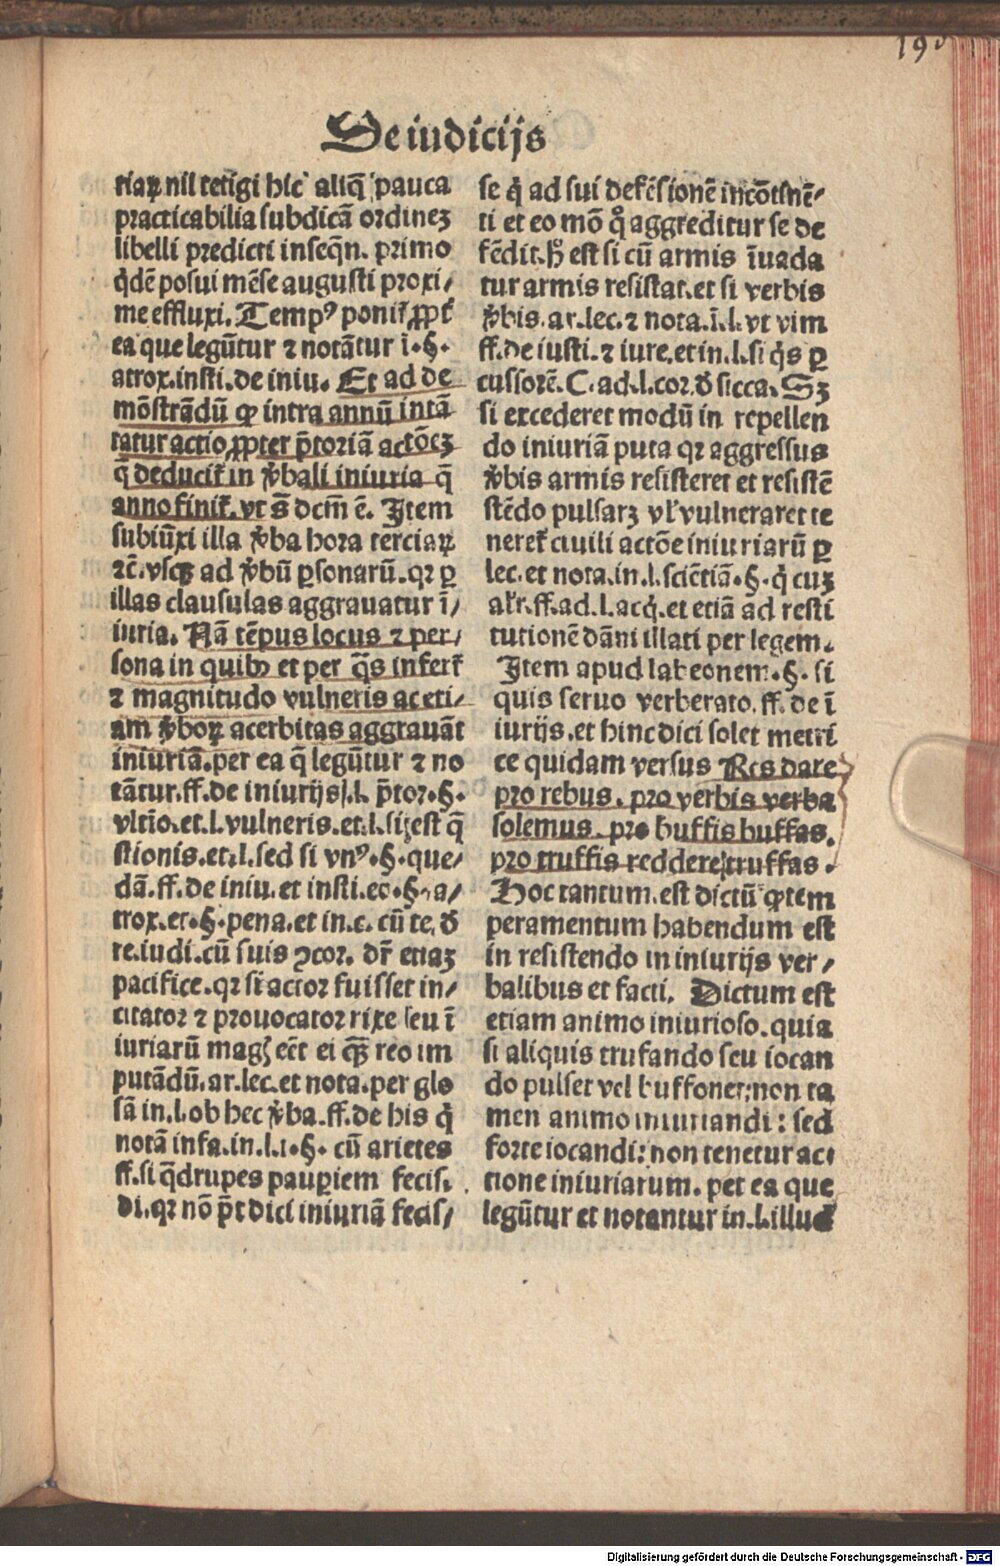 190
De iudicijs
riaꝝ nil tetigi hic aliq̃ pauca
practicabilia subdicã ordinez
libelli predicti inseqñ. primo
q̇dẽ posui mẽse augusti proxi/
me effluxi. Tempꝰ poniť ꝓpť
ea que legũtur ⁊ notãtur ĩ.§.
atrox. insti. de iniu. Et ad de
mõstrãdũ ꝙ intra annũ intã
tatur actio ꝓpter p̃toriã actõez
q̃ deduciť in v̾bali iniuria q̃
anno finiť. vt s̃ dcm̃ ẽ. Item
subiũxi illa v̾ba hora terciaꝝ
⁊c̃. vsqꝫ ad v̾bũ ꝑsonarũ. qꝛ ꝑ
illas clausulas aggrauatur ĩ/
iuria. Nã tẽpus locus ⁊ per/
sona in quibꝰ et per q̃s inferť
⁊ magnitudo vulneris ac eti/
am v̾boꝝ acerbitas aggrauãt
iniuriã. per ea q̃ legũtur ⁊ no
tãtur. ff. de iniurijs. l. p̃tor. §.
vltĩo. et. l. vulneris. et. l. si est q̃
stionis. et. l. sed si vnꝰ. §. que/
dã. ff. de iniu. et insti. eo. §. a/
trox. et. §. pena. et in. c. cũ te. ď
re. iudi. cũ suis ꝯcor. dr̃ etiaz
pacifice. qꝛ si actor fuisset in/
citator ⁊ prouocator rixe seu ĩ
iuriarũ magꝭ eẽt ei qꝫ̃ reo im
putãdũ. ar. lec. et nota. per glo
sã in. l. ob hec v̾ba. ff. de his q̇
notã infa. in. l. i. §. cũ arietes
ff. si q̃drupes pauꝑiem fecis.
di. qꝛ nõ p̃t dici iniuriã fecis/
se q̇ ad sui defẽsionẽ incõtinẽ/
ti et eo mõ q̊ aggreditur se de
fẽdit. h̾ est si cũ armis ĩuada
tur armis resistat. et si verbis
v̾bis. ar. lec. ⁊ nota. ĩ. l. vt vim
ff. de iusti. ⁊ iure. et in. l. si q̇s ꝑ
cussorẽ. C. ad. l. cor. ď sicca. Sz
si excederet modũ in repellen
do iniuriã puta qꝛ aggressus
v̾bis armis resisteret et resistẽ
stẽdo pulsarz vľ vulneraret te
nereť ciuili actõe iniuriarũ ꝑ
lec. et nota. in. l. sciẽtiã. §. q̇ cuz
alr̃. ff. ad. l. acq̇. et etiã ad resti
tutionẽ dãni illati per legem.
Item apud labeonem. §. si
quis seruo verberato. ff. de ĩ
iurijs. et hinc dici solet metri
ce quidam versus Res dare
pro rebus. pro verbis verba
solemus. pro buffis buffas.
pro truffis reddere truffas.
Hoc tantum. est dictũ ꝙ tem
peramentum habendum est
in resistendo in iniurijs ver/
balibus et facti. Dictum est
etiam animo iniurioso. quia
si aliquis trufando seu iocan
do pulset vel buffonet: non ta
men animo iniuriandi: sed
forte iocandi: non tenetur ac.
tione iniuriarum. pet ea que
legũtur et notantur in. l. illud
Digitalisierung gefördert durch die Deutsche Forschungsgemeinschaft - DFG